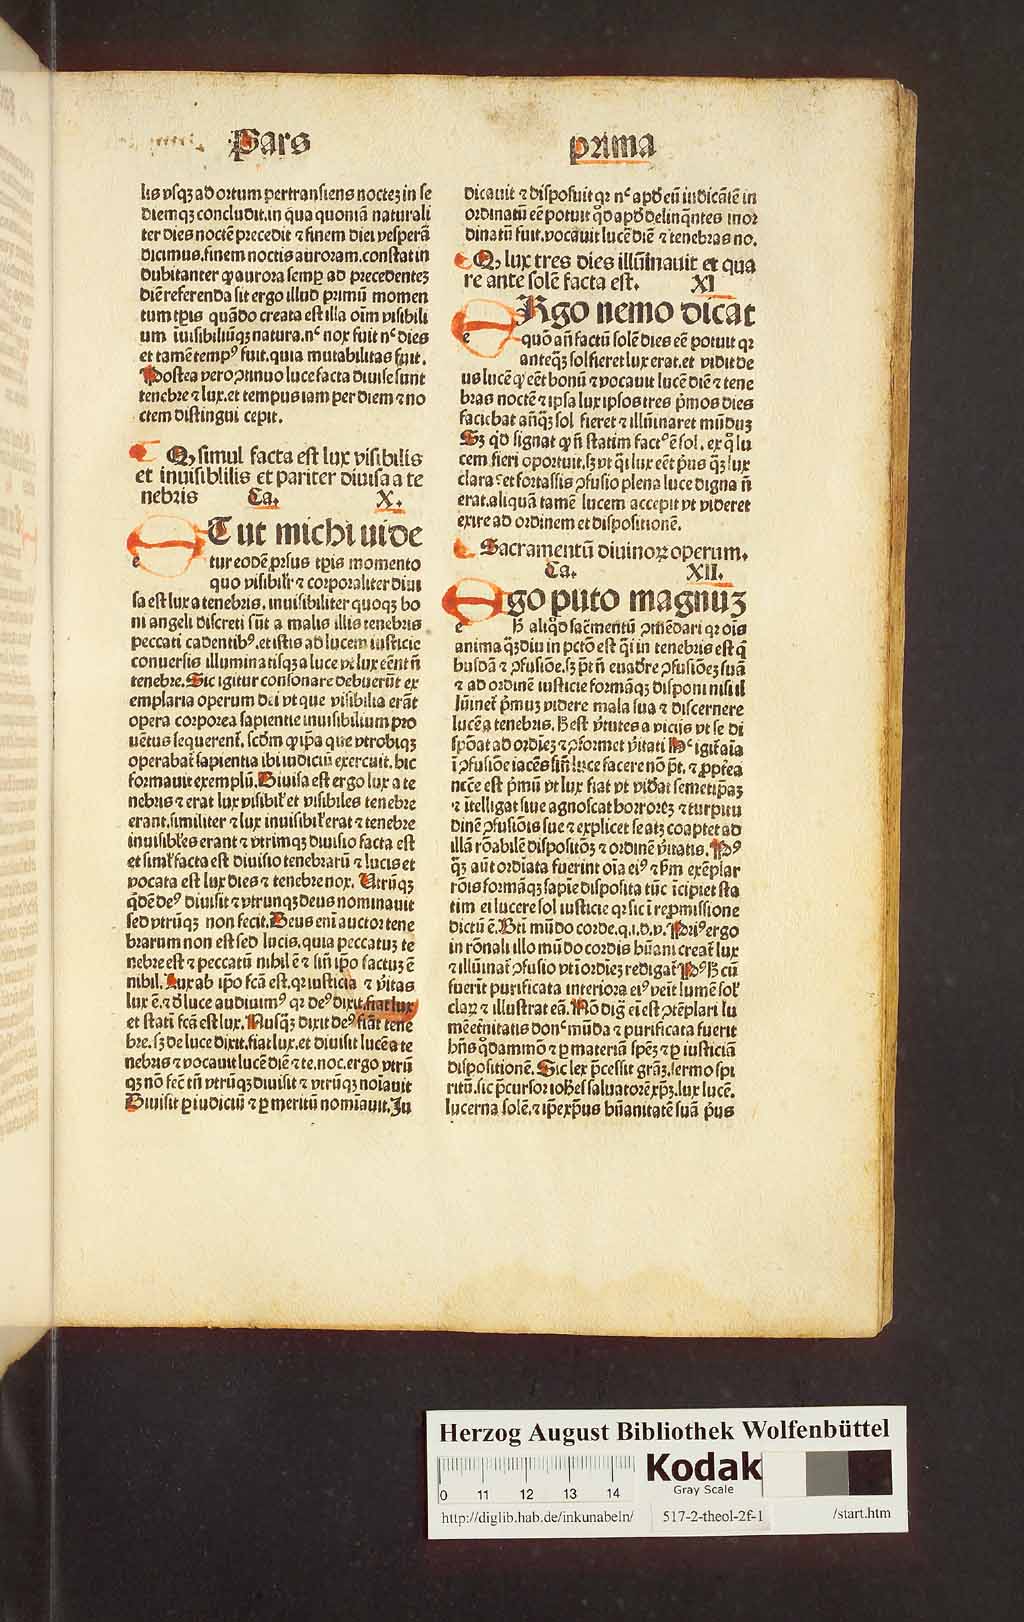 Pars prima
lis vsqꝫ ad ortum pertransiens nocteꝫ in se
diemqꝫ concludit.in qua quoniā naturali
ter dies noctē precedit ⁊ finem diei vesperā
dicimus.finem noctis auroram.constat in
dubitanter ꝙ aurora semꝑ ad precedenteꝫ
diē referenda sit ergo illud primū momen
tum tꝑis quādo creata est illa oīm visibili
um īuisibiliūqꝫ natura.nᶜ nox fuit nᶜ dies
et tamē tempꝰ fuit.quia mutabilitas fuit.
Postea vero ꝯtinuo luce facta diuise sunt
tenebre ⁊ lux.et tempus iam per diem ⁊ no
ctem distingui cepit.
Q, simul facta est lux visibilis
et inuisiblilis et pariter diuisa a te
nebris Ca. X.
e T ut michi uide
tur eodē ꝓrsus tꝑis momento
quo visibilr̄ ⁊ corporaliter diui
sa est lux a tenebris. inuisibiliter quoqꝫ bo
ni angeli discreti sūt a malis illis tenebris
peccati cadentibꝰ.et istis ad lucem iusticie
conuersis illuminatisqꝫ a luce vt lux eēnt n̄
tenebre.Sic igitur consonare debuerūt ex
emplaria operum dei vt que visibilia erāt
opera corporea sapientie inuisibilium pro
uētus sequerent̄. scdm̄ ꝙ ip̄a que vtrobiqꝫ
operabat̄ sapientia ibi iudiciū exercuit. hic
formauit exemplū.Diuisa est ergo lux a te
nebris ⁊ erat lux visibil̄ et visibiles tenebre
erant.similiter ⁊ lux inuisibil̄ erat ⁊ tenebre
inuisibiles erant ⁊ vtrimqꝫ diuisio facta est
et simil̄ facta est diuisio tenebrarū ⁊ lucis et
vocata est lux dies ⁊ tenebre nox. Utrūqꝫ
q̄dē deꝰ diuisit ⁊ vtrunqꝫ deus nominauit
sed vtrūqꝫ non fecit.Deus enī auctor tene
brarum non est sed lucis.quia peccatuꝫ te
nebre est ⁊ peccatū nihil ē ⁊ sin̄ ip̄o factuꝫ ē
nihil.Lux ab ip̄o fcā est.qꝛ iusticia ⁊ v̄itas
lux ē.⁊ d̄ luce audiuimꝰ qꝛ deꝰ dixit.fiat lux
et statī fcā est lux.Nusqꝫ dixit deꝰ fiāt tene
bre.sꝫ de luce dixit.fiat lux.et diuisit lucē a te
nebris ⁊ vocauit lucē diē ⁊ te.noc.ergo vtrū
qꝫ nō fec̄ tn̄ vtrūqꝫ diuisit ⁊ vtrūqꝫ noīauit
Diuisit ꝑ iudiciū ⁊ ꝑ meritū nomīauit.Iu
dicauit ⁊ disposuit qꝛ nᶜ apd̄ eū iudicātē in
ordinatū eē potuit qd̄ apd̄ delinq̄ntes inor
dinatū fuit.vocauit lucē diē ⁊ tenebras no.
Q, lux tres dies illūinauit et qua
re ante solē facta est. XI
e Rgo nemo dicat
quō an̄ factū solē dies eē potuit qꝛ
anteqꝫ sol fieret lux erat.et vidit de
us lucē ꝙ eēt bonū ⁊ vocauit lucē diē ⁊ tene
bras noctē ⁊ ipsa lux ipsos tres p̄mos dies
faciebat an̄qꝫ sol fieret ⁊ illūinaret mūduꝫ
Sꝫ qd̄ signat ꝙ n̄ statim factꝰ ē sol. ex q̄ lu
cem fieri oportuit.sꝫ vt q̄i lux eēt p̄us qꝫ lux
clara ⁊ et fortassis ꝯfusio plena luce digna n̄
erat.aliquā tamē lucem accepit vt videret
exire ad ordinem et dispositionē.
Sacramentū diuinoꝝ operum.
Ca. XII.
e go puto magnuꝫ
h̄ aliqd̄ sac̄mentū ꝯmēdari qꝛ oīs
anima qꝫdiu in pctō est q̄i in tenebris est q̄
busdā ⁊ ꝯfusiōe.sꝫ p̄t n̄ euadr̄e ꝯfusiōeꝫ suā
⁊ ad ordinē iusticie formāqꝫ disponi nisi il
lūinet̄ p̄muꝫ videre mala sua ⁊ discernere
lucē a tenebris. h̄ est v̄tutes a vicijs vt se di
spōat ad ordīeꝫ ⁊ ꝯformet v̄itati Hᶜ igit̄ aīa
ī ꝯfusiōe iacēs sin̄ luce facere nō p̄t. ⁊ ꝓpt̄ea
nc̄ce est p̄mū vt lux fiat vt vid̄at semetip̄aꝫ
⁊ ītelligat siue agnoscat horroreꝫ ⁊ turpitu
dinē ꝯfusiōis sue ⁊ explicet se atqꝫ coaptet ad
illā rōabilē dispositōꝫ ⁊ ordinē v̄itatis. Pꝰ
qꝫ aūt ordīata fuerint oīa eiꝰ ⁊ s̄m exēplar
rōis formāqꝫ sapīe disposita tūc īcipiet sta
tim ei lucere sol iusticie qꝛ sic ī repmissione
dictū ē. Bt̄i mūdo corde.q.i.d.v.Priꝰ ergo
in rōnali illo mūdo cordis hūani creat̄ lux
⁊ illūinat̄ ꝯfusio vt ī ordīeꝫ redigat̄ Pꝰ h̄ cū
fuerīt purificata interiora eiꝰ veīt lumē sol̄
claꝝ ⁊ illustrat eā. Nō diḡ eī est ꝯtēplari lu
mē et̄nitatis donᶜ mūda ⁊ purificata fuerit
hn̄s qd̄ammō ⁊ ꝑ materiā spēꝫ ⁊ ꝑ iusticiā
dispositionē. Sic lex p̄cessit grāꝫ.sermo spi
ritū.sic p̄cursor ioh̄es saluatorē xp̄ꝫ.lux lucē.
lucerna solē.⁊ ip̄e xp̄us hūanitatē suā p̄us
Herzog August Bibliothek Wolfenbüttel
0 11 12 13 14
Kodak
Gray Scale
http://diglib.hab.de/inkunabeln/ 517-2-theol-2f-1 /start.htm